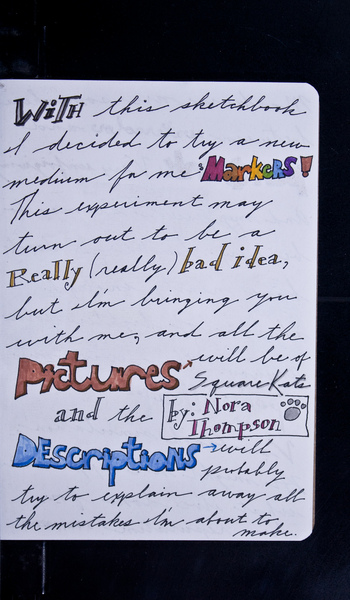 WiTH this sketchbook
I decided to try a new
medium for me: MarkeRS!
This experiment may
turn out to be a
Really (really) bad idea,
but I'm bringing you
with me, and all the
Pictures → will be of
SquareKats
and the by: Nora
Thompson
DEscriptions → will
probably
try to explain away all
the mistakes I'm about to
make.